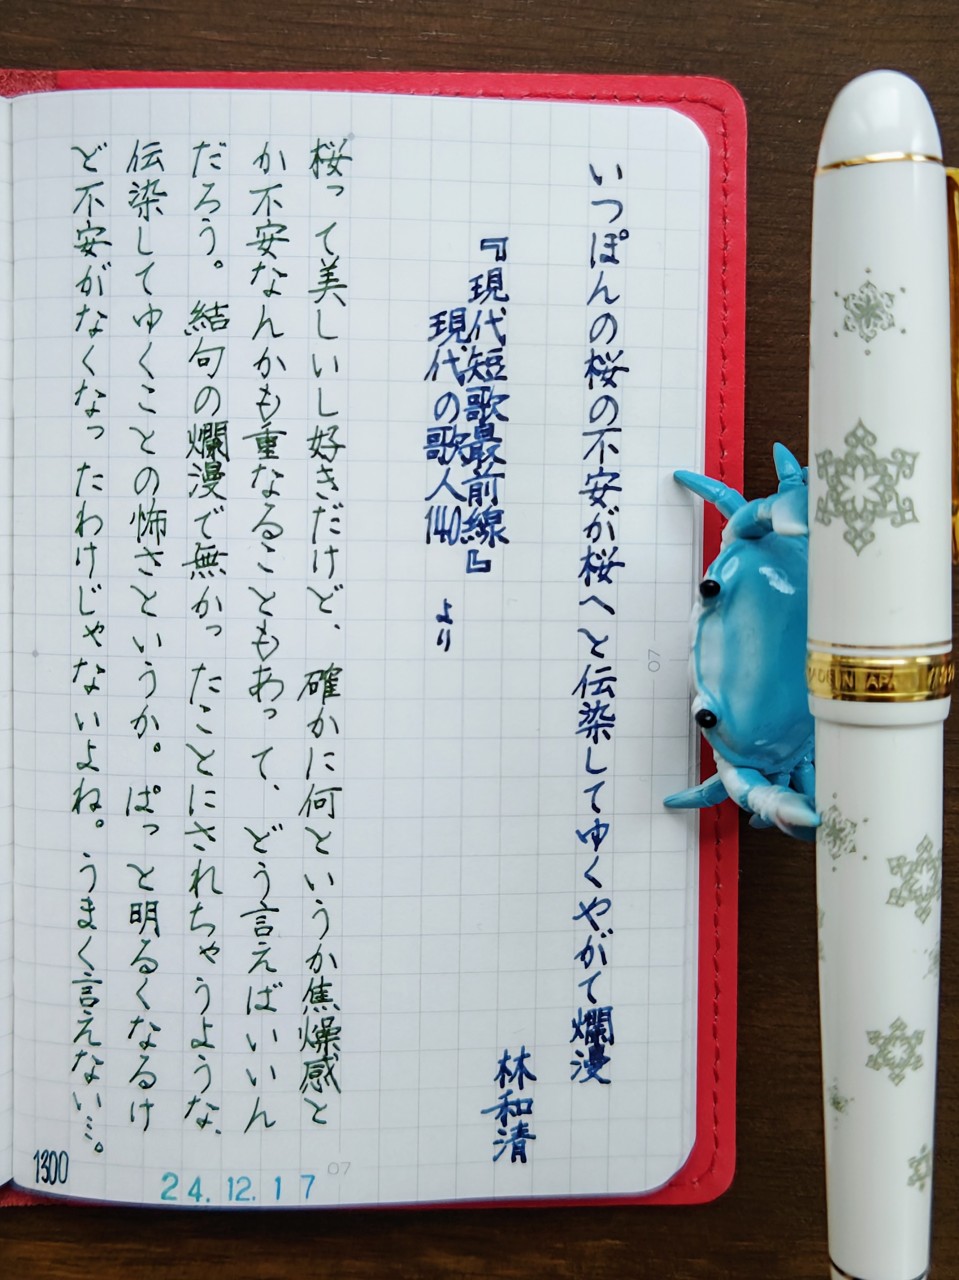 いつぽんの桜の不安が桜へと伝染してゆくやがて爛漫
林和清
『現代短歌最前線』
現代の歌人140
より
桜って美しいし好きだけど、確かに何というか焦燥感と
か不安なんかも重なることもあって、どう言えばいいん
だろう。結句の爛漫で無かったことにされちゃうような、
伝染してゆくことの怖さというか。ぱっと明るくなるけ
ど不安がなくなったわけじゃないよね。うまく言えない…。
1300
24.12.17
07
07
MADE IN JAPAN